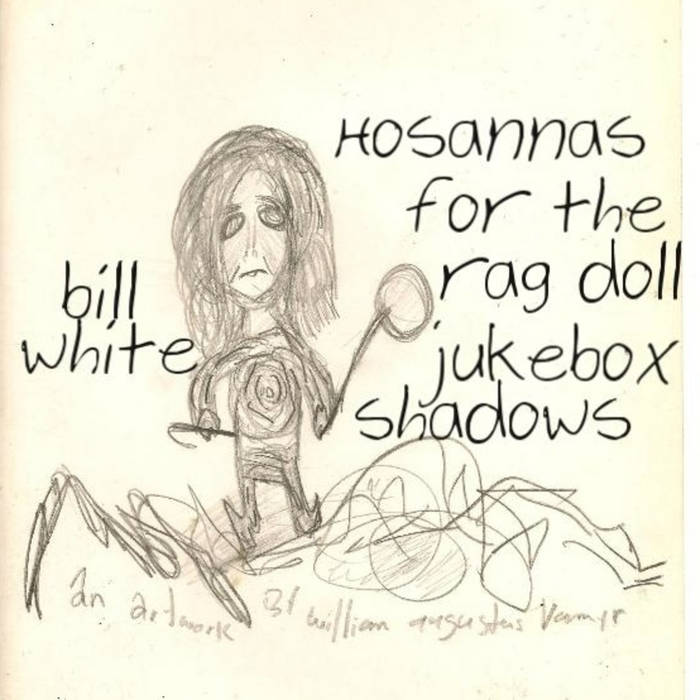 Hosannas
for the
rag doll
jukebox
shadows
bill
white
an artwork By william augustus